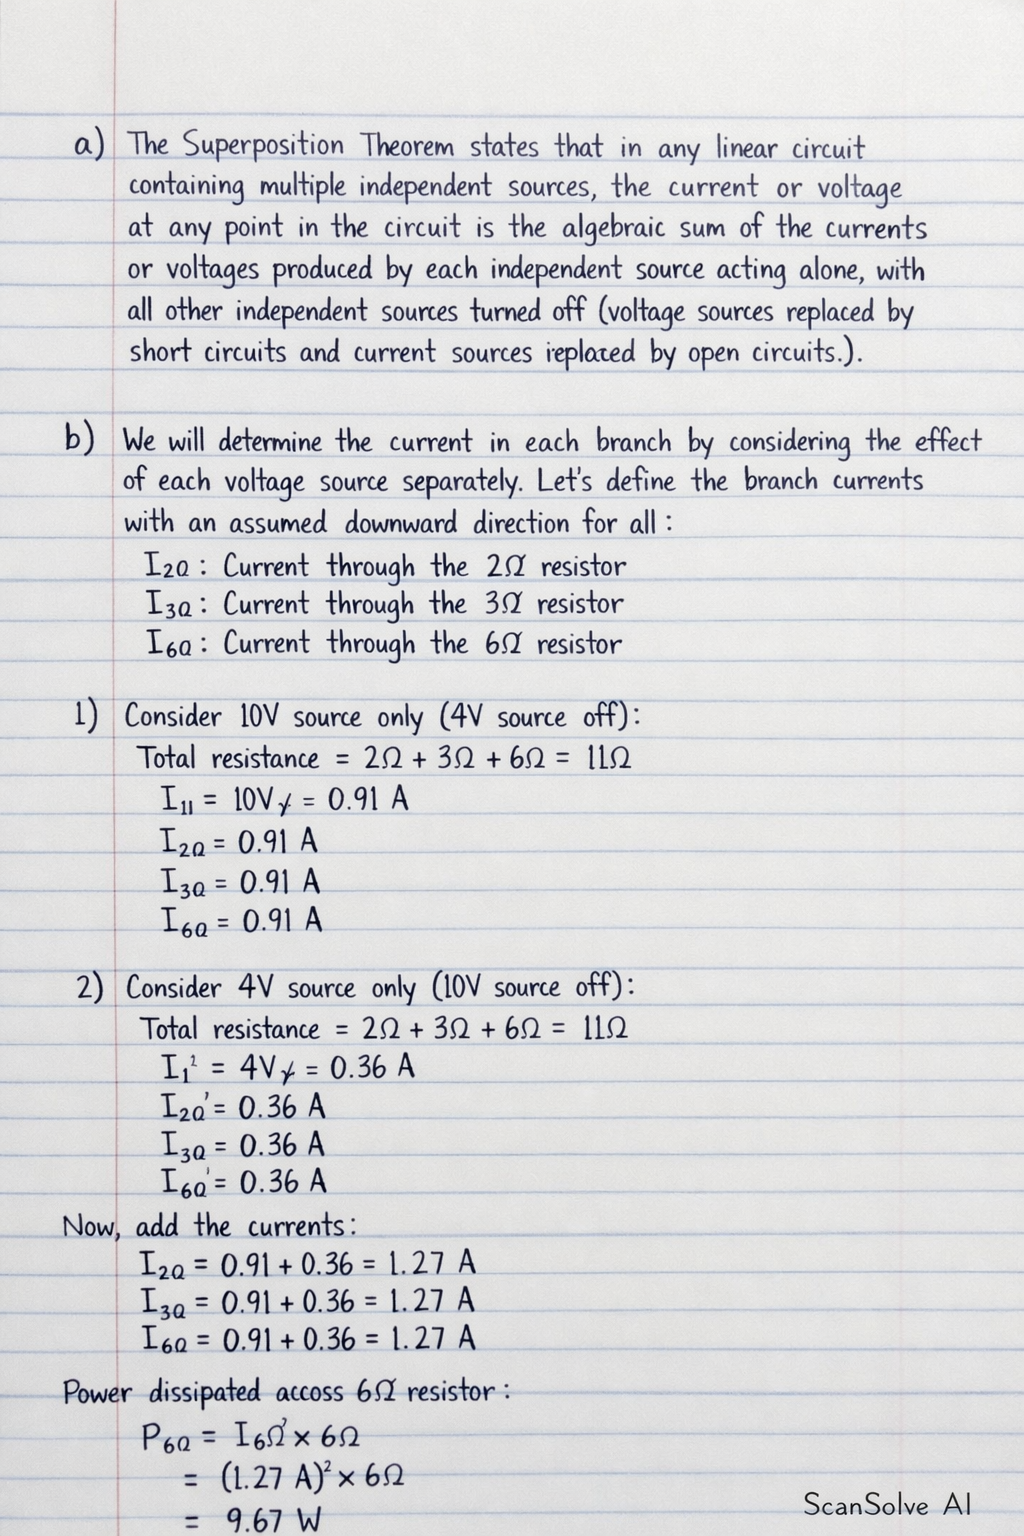 a) The Superposition Theorem states that in any linear circuit
containing multiple independent sources, the current or voltage
at any point in the circuit is the algebraic sum of the currents
or voltages produced by each independent source acting alone, with
all other independent sources turned off (voltage sources replaced by
short circuits and current sources replaced by open circuits.).
b) We will determine the current in each branch by considering the effect
of each voltage source separately. Let's define the branch currents
with an assumed downward direction for all :
I₂Ω : Current through the 2Ω resistor
I₃Ω : Current through the 3Ω resistor
I₆Ω : Current through the 6Ω resistor
1) Consider 10V source only (4V source off):
Total resistance = 2Ω + 3Ω + 6Ω = 11Ω
I₁₁ = 10V = 0.91 A
I₂Ω = 0.91 A
I₃Ω = 0.91 A
I₆Ω = 0.91 A
2) Consider 4V source only (10V source off):
Total resistance = 2Ω + 3Ω + 6Ω = 11Ω
I₁² = 4V = 0.36 A
I₂Ω' = 0.36 A
I₃Ω = 0.36 A
I₆Ω' = 0.36 A
Now, add the currents:
I₂Ω = 0.91 + 0.36 = 1.27 A
I₃Ω = 0.91 + 0.36 = 1.27 A
I₆Ω = 0.91 + 0.36 = 1.27 A
Power dissipated accoss 6Ω resistor :
P₆Ω = I₆Ω² × 6Ω
= (1.27 A)² × 6Ω
= 9.67 W
ScanSolve AI